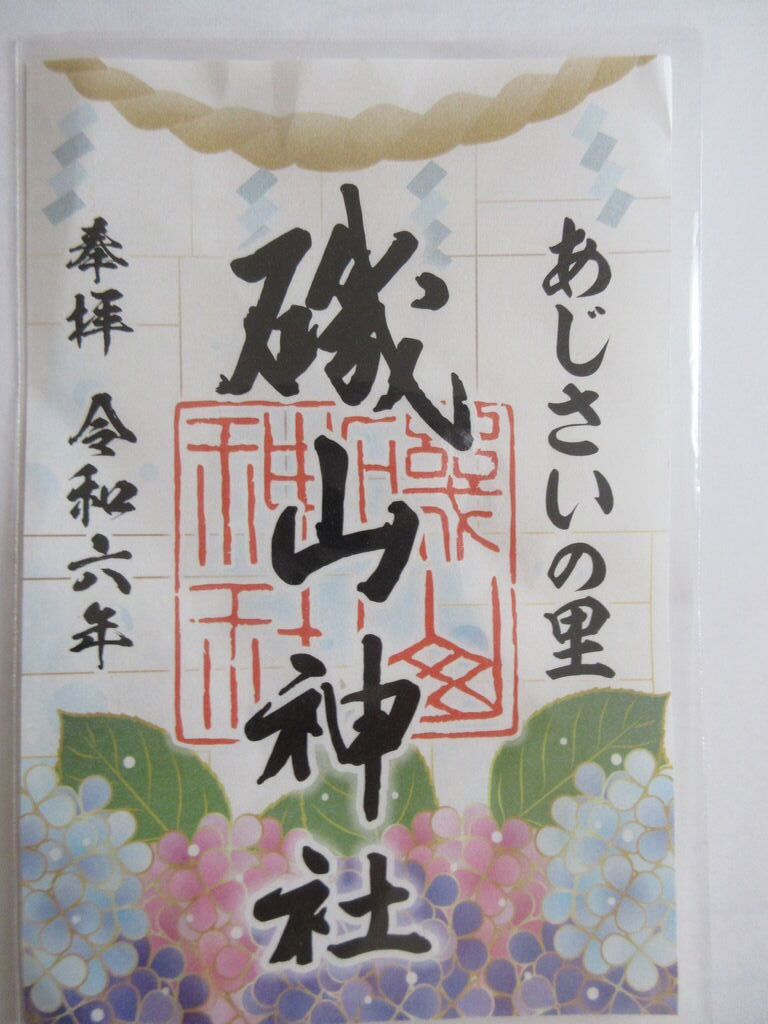 あじさいの里
磯山神社
奉拝 令和六年
磯山神社